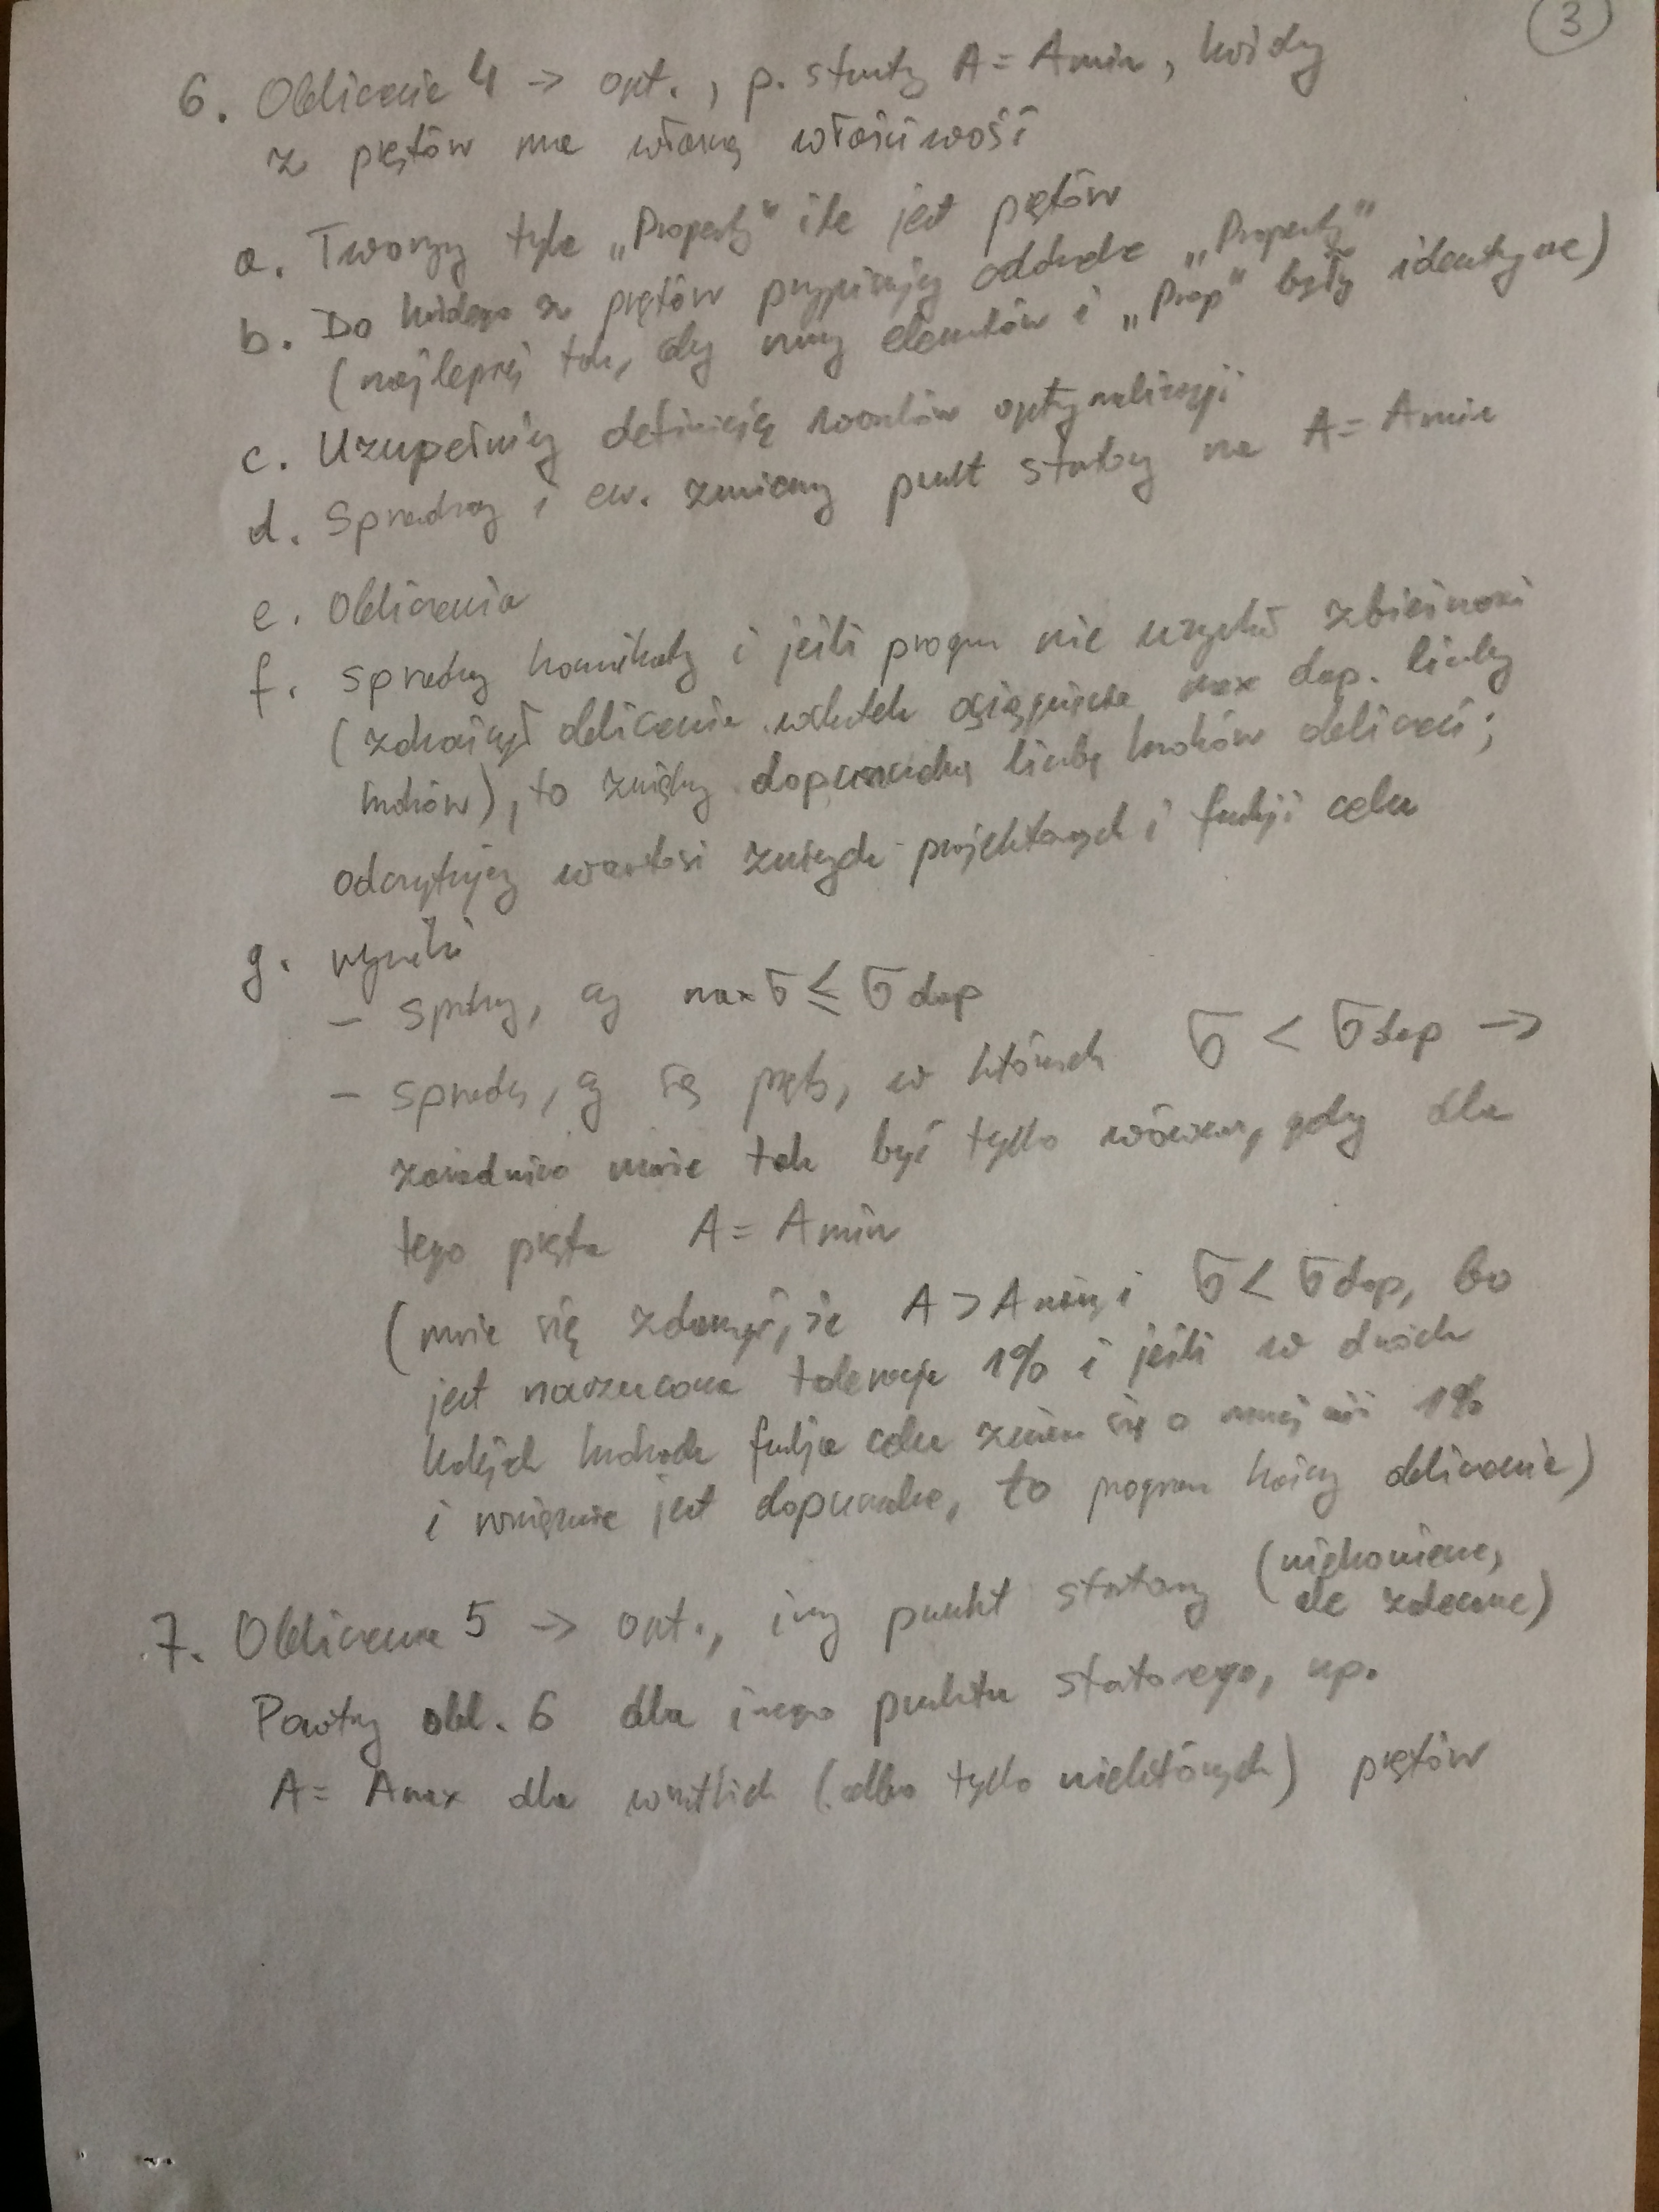 3
6. Obliczenie 4 → opt., p. startowy A = Amin, każdy
z prętów ma własną właściwość
a. Tworzymy tyle „Property" ile jest prętów
b. Do każdego z prętów przypisujemy oddzielne „Property"
(najlepiej tak, aby numery elementów i „Prop" były identyczne)
c. Uzupełniamy definicję warunków optymalizacji
d. Sprawdzamy i ew. zmieniamy punkt startowy na A = Amin
e. Obliczenia
f. Sprawdzamy komunikaty i jeśli program nie uzyskał zbieżności
(zakończył obliczenia wskutek osiągnięcia max dop. liczby
kroków), to zwiększamy dopuszczalną liczbę kroków obliczeń;
odczytujemy wartości zmiennych projektowych i funkcji celu
g. wyniki
– sprawdzamy, czy max σ ≤ σ dop
– sprawdzamy, czy są pręty, w których σ < σ dop →
zasadniczo może tak być tylko wówczas, gdy dla
tego pręta A = Amin
(może się zdarzyć, że A > Amin i σ < σ dop, bo
jest narzucona tolerancja 1% i jeśli w dwóch
kolejnych krokach funkcja celu zmieni się o mniej niż 1%
i rozwiązanie jest dopuszczalne, to program kończy obliczenia)
7. Obliczenia 5 → opt., inny punkt startowy (niekonieczne,
ale zalecane)
Powtarzamy obl. 6 dla innego punktu startowego, np.
A = Amax dla wszystkich (albo tylko niektórych) prętów